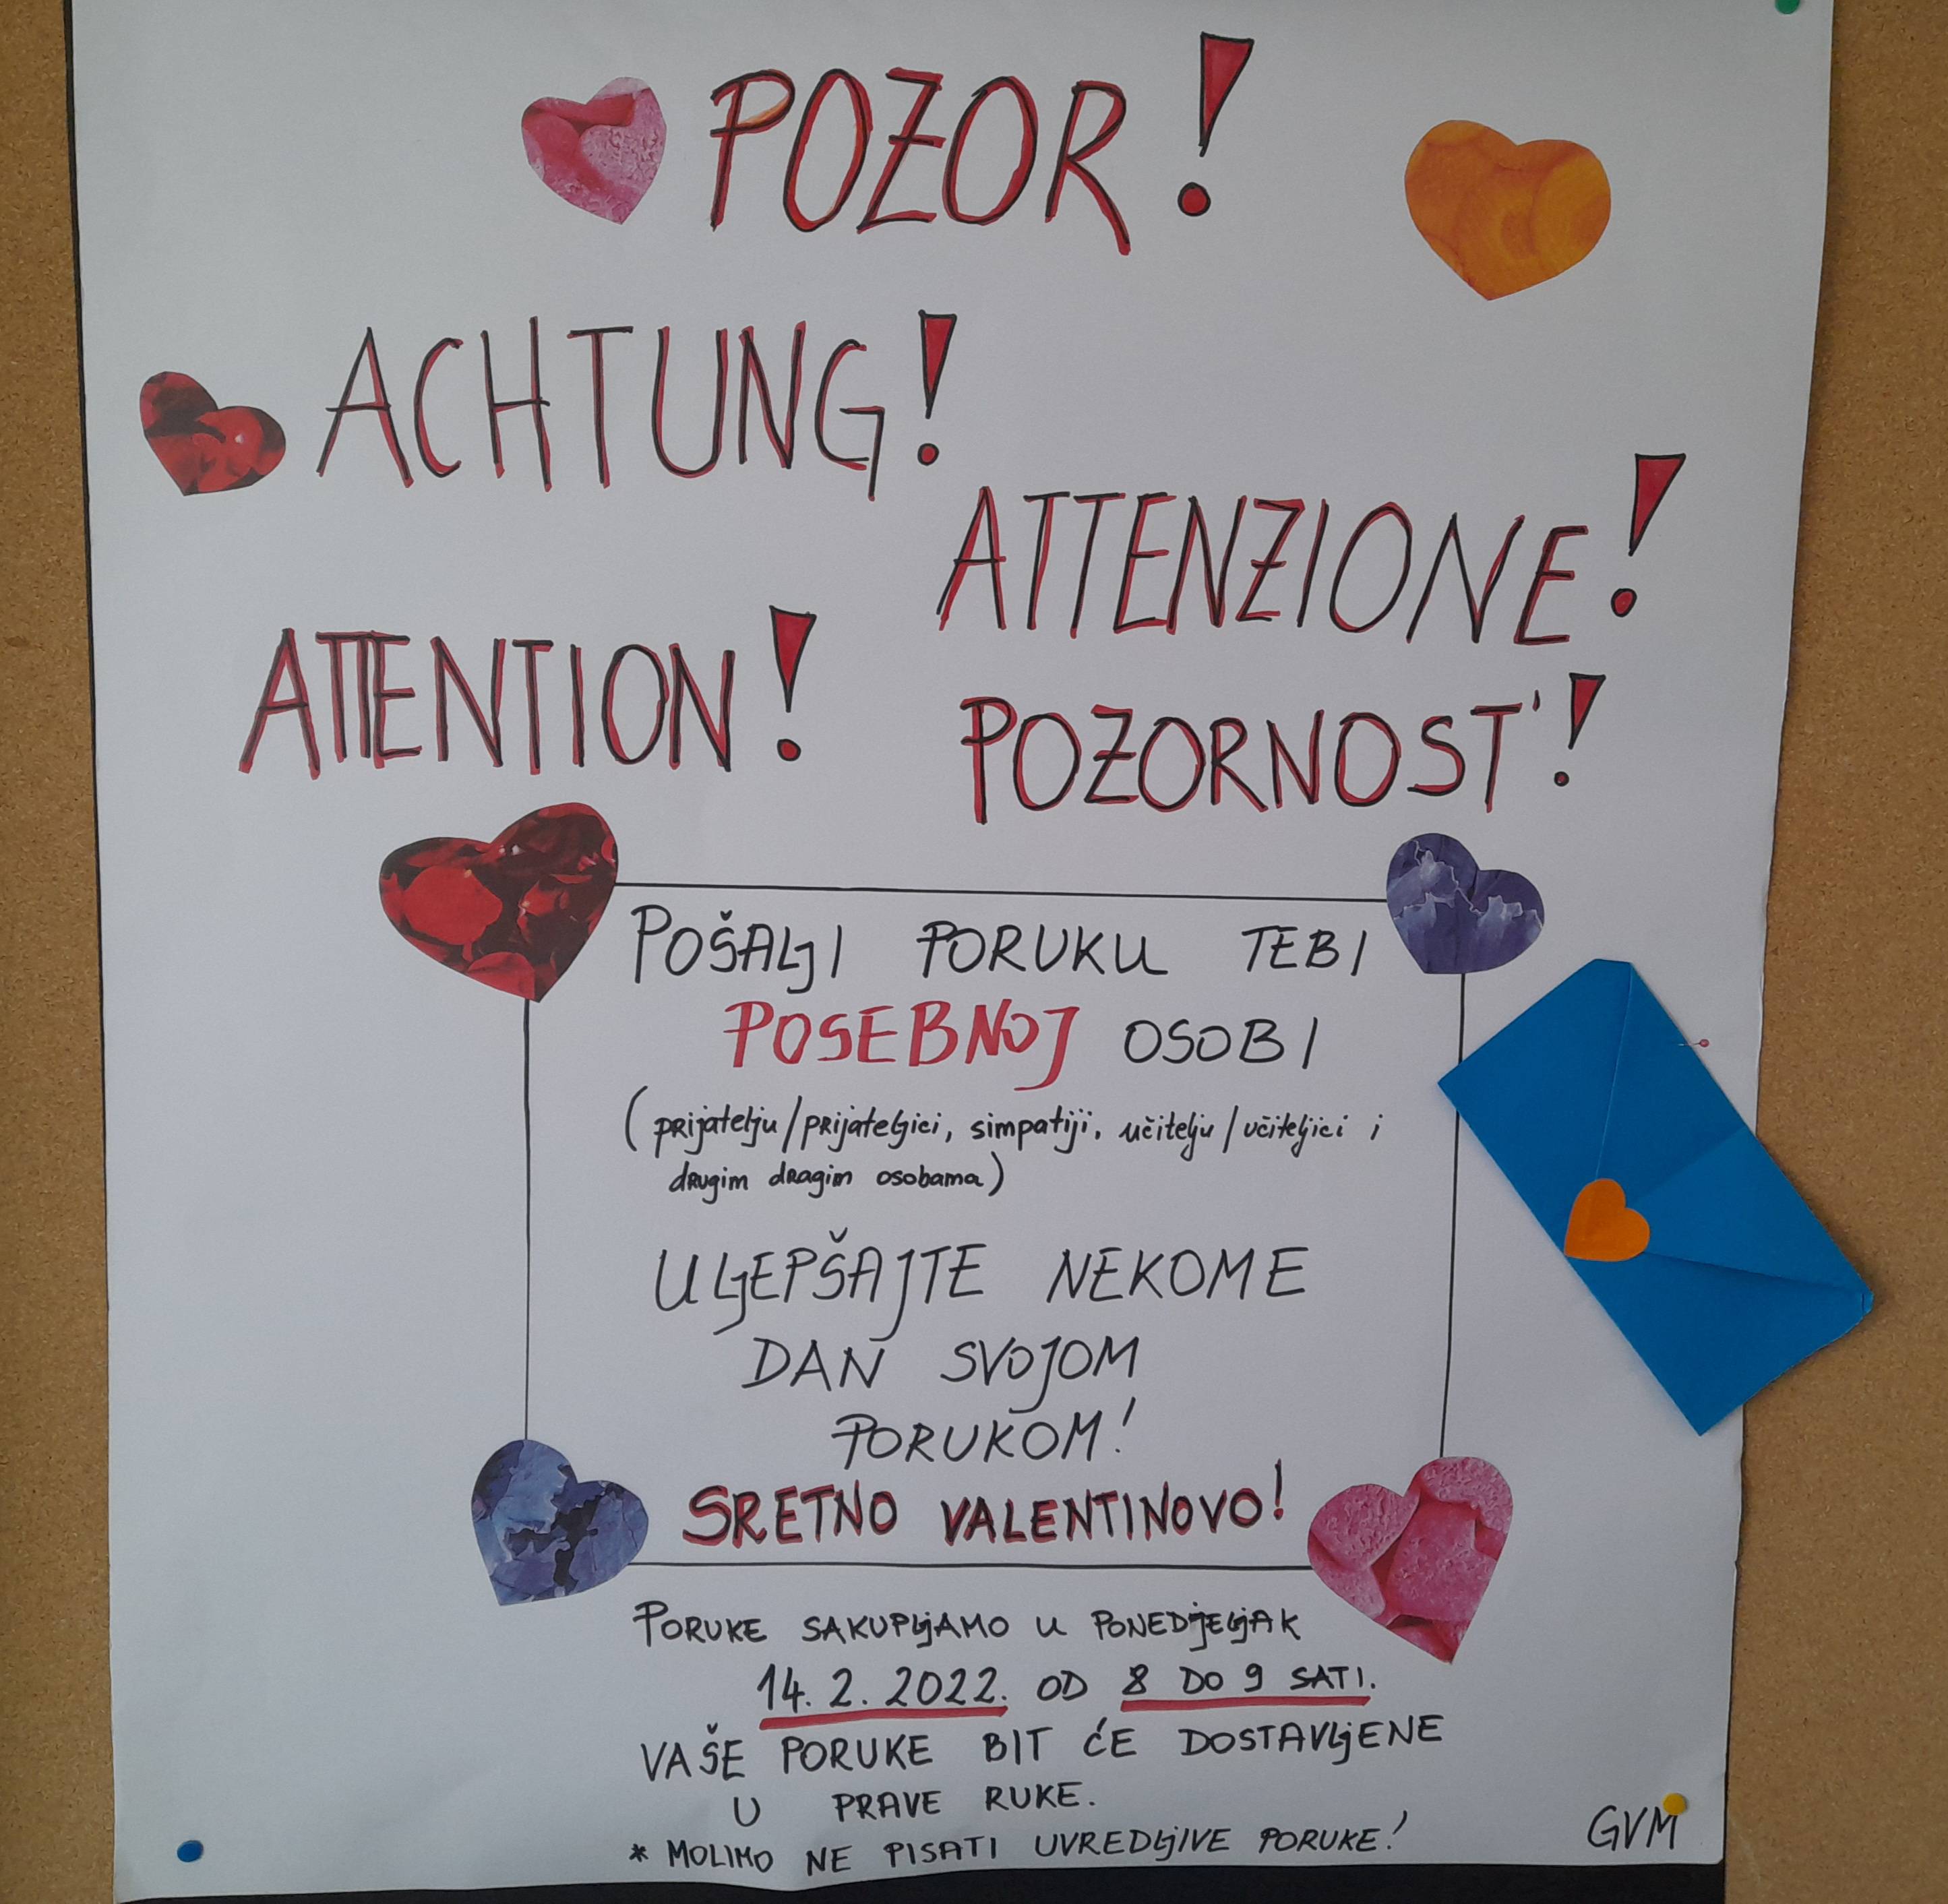 POZOR!
ACHTUNG!
ATTENZIONE!
ATTENTION!
POZORNOST'!
POŠALJI PORUKU TEBI
POSEBNOJ OSOBI
(prijatelju/prijateljici, simpatiji, učitelju/učiteljici i
drugim dragim osobama)
ULJEPŠAJTE NEKOME
DAN SVOJOM
PORUKOM!
SRETNO VALENTINOVO!
PORUKE SAKUPLJAMO U PONEDJELJAK
14. 2. 2022. OD 8 DO 9 SATI.
VAŠE PORUKE BIT ĆE DOSTAVLJENE
U PRAVE RUKE.
* MOLIMO NE PISATI UVREDLJIVE PORUKE!
GVM